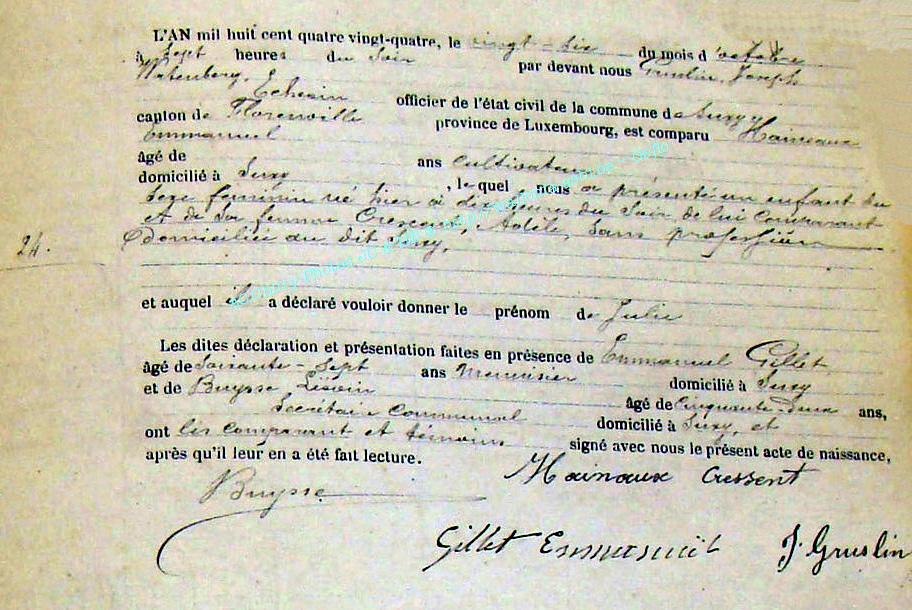 L'AN mil huit cent quatre vingt-quatre, le vingt-six du mois d'octobre
à sept heures du soir par devant nous Gruslin, Joseph
Echevin officier de l'état civil de la commune de Suxy
canton de Florenville province de Luxembourg, est comparu Hainaux
Emmanuel
âgé de ans cultivateur
domicilié à Suxy , lequel nous a présenté un enfant du
sexe féminin né hier à dix heures du soir, de lui comparant
et de sa femme Adèle, sans profession
domiciliée au dit Suxy,
24.
et auquel il a déclaré vouloir donner le prénom de Julie
Les dites déclaration et présentation faites en présence de Emmanuel Gillet
âgé de soixante-sept ans menuisier domicilié à Suxy
et de Buysse âgé de cinquante-deux ans,
Secrétaire Communal domicilié à Suxy, et
ont les comparant et témoins signé avec nous le présent acte de naissance,
après qu'il leur en a été fait lecture.
Buysse Hainaux Cressent
Gillet Emmanuel J. Gruslin